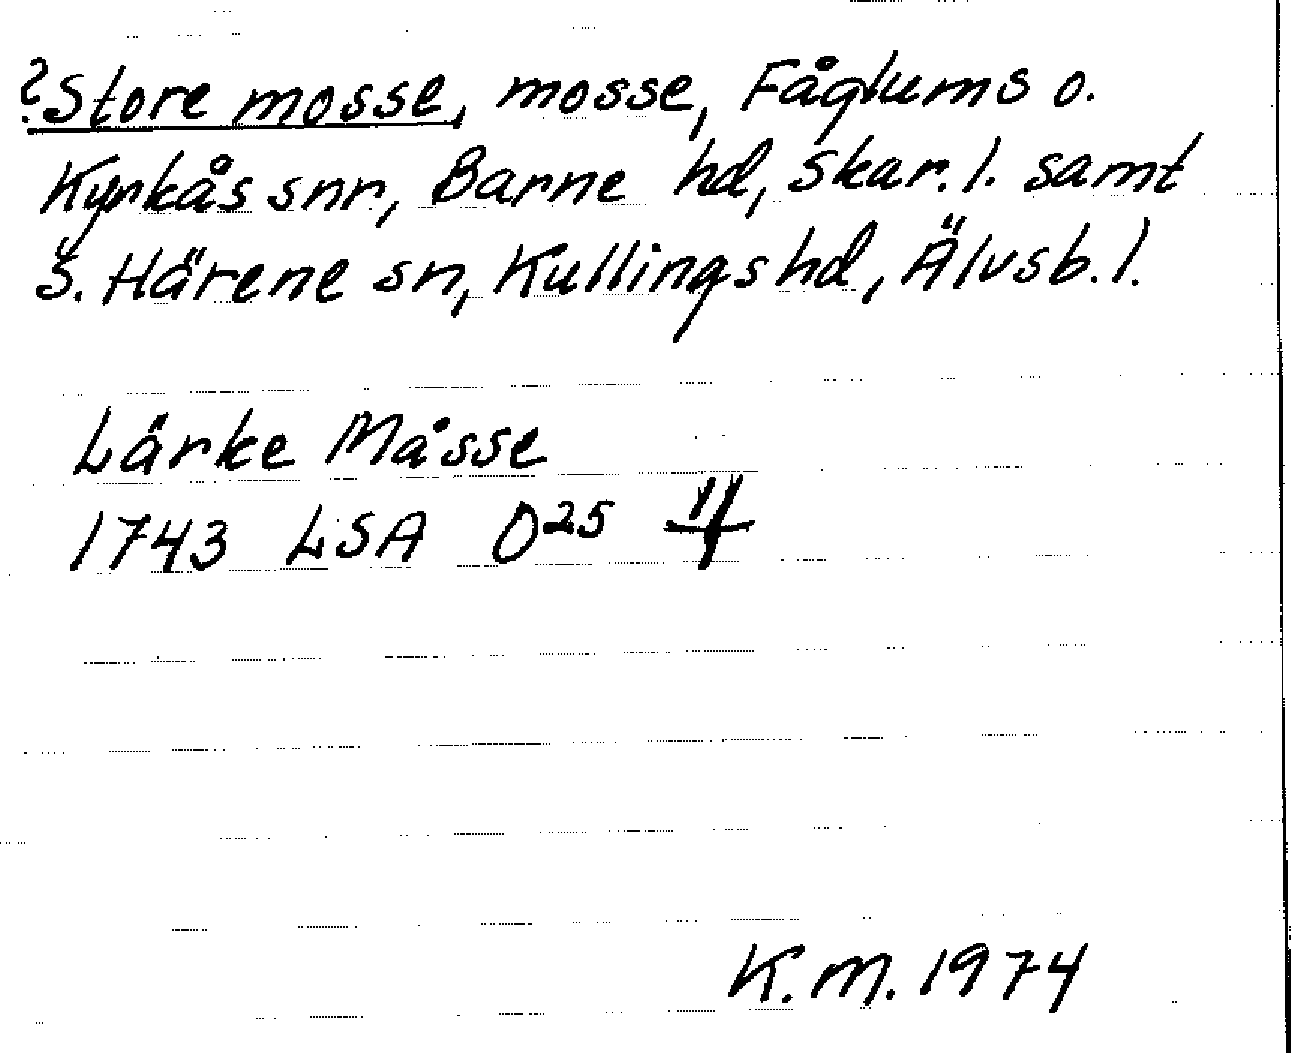 ?Store mosse, mosse, Fåglums o.
Kyrkås snr, Barne hd, Skar. l. samt
S. Härene sn, Kullings hd, Älvsb. l.
Lärke Måsse
1743 LSA O25
K.M. 1974